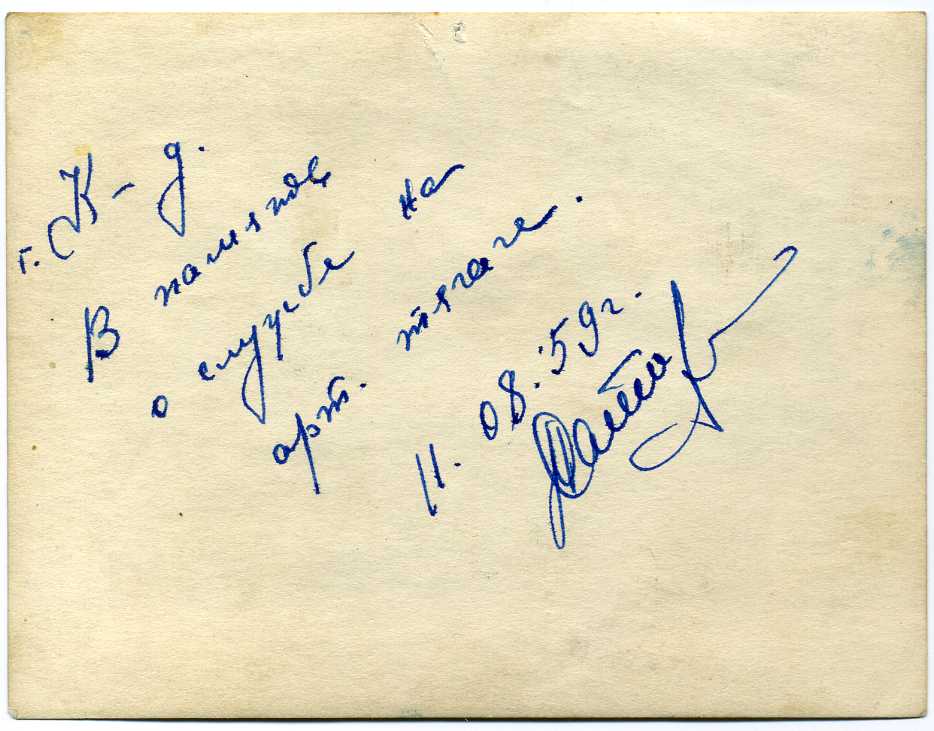 г. К-д.
В память
о службе на
арт. тягаче.
11. 08. 59г.